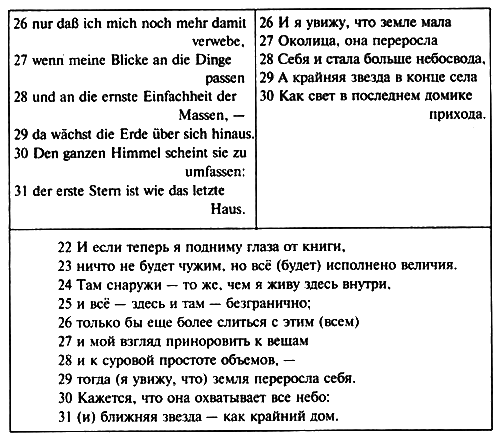 26 nur daß ich mich noch mehr damit
verwebe,
27 wenn meine Blicke an die Dinge
passen
28 und an die ernste Einfachheit der
Massen, —
29 da wächst die Erde über sich hinaus.
30 Den ganzen Himmel scheint sie zu
umfassen:
31 der erste Stern ist wie das letzte
Haus.
26 И я увижу, что земле мала
27 Околица, она переросла
28 Себя и стала больше небосвода,
29 А крайняя звезда в конце села
30 Как свет в последнем домике
прихода.
22 И если теперь я подниму глаза от книги,
23 ничто не будет чужим, но всё (будет) исполнено величия.
24 Там снаружи — то же, чем я живу здесь внутри,
25 и всё — здесь и там — безгранично;
26 только бы еще более слиться с этим (всем)
27 и мой взгляд приноровить к вещам
28 и к суровой простоте объемов, —
29 тогда (я увижу, что) земля переросла себя.
30 Кажется, что она охватывает все небо:
31 (и) ближняя звезда — как крайний дом.